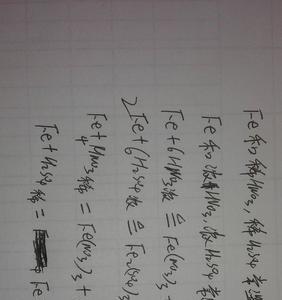 Fe和稀HNO₃,稀H₂SO₄常
Fe和浓HNO₃,浓H₂SO₄常
Fe+6HNO₃浓≜Fe(NO₃)₃+
2Fe+6H₂SO₄浓≜Fe₂(SO₄)₃
Fe+4HNO₃稀=Fe(NO₃)₃+
Fe+H₂SO₄稀=Fe